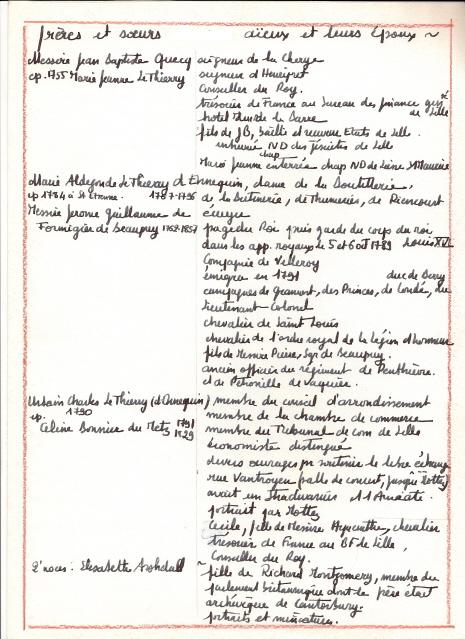 frères et sœurs aïeux et leurs époux ~
Messire Jean Baptiste Quecq seigneur de la Cherye
ep. 1755 Marie Jeanne Le Thierry seigneur d'Hevigret
Conseiller du Roy.
trésorier de France au bureau des finances
de Lille
hotel rue de la Barre
fils de JB, bailli et receveur Etats de Lille.
inhumé ND des Jésuites de Lille
Marie Jeanne enterrée chap ND de Maurice
Marie Aldegonde Le Thierry d'Ennequin, dame de la Boutillerie,
ep 1784 à St Etienne 1767-1796 de la Bettinerie, de Thumeries, de Riencourt
Messire Jerome Guillaume de écuyer
Formigier de Beaupuy 1762-1857 page du Roi puis garde du corps du roi
dans les app. royaux le 5 et 6 oct 1789 Louis XVI
Compagnie de Villeroy
émigra en 1791 duc de Berry
campagnes de Gramont, des Princes, de Condé, du
lieutenant-Colonel
chevalier de Saint Louis
chevalier de l'ordre royal de la légion d'honneur
fils de Messire Pierre, Sgr de Beaupuy.
ancien officier du régiment de Penthièvre.
et de Petronille de Vaquier.
Urbain Charles Le Thierry (d'Ennequin) membre du conseil d'arrondissement
ep. 1790 membre de la chambre de commerce
Celine Bonnier du Metz 1791 1829 membre du Tribunal de com de Lille
économiste distingué
divers ouvrages pr soutenir le libre échange
rue Vantroyen salle de concert,
avait un Stradivarius
portrait par
Cecile, fille de Messire Hyacinthe, chevalier
Trésorier de France au BF de Lille,
Conseiller du Roy.
2° noces: Elisabette Archdall ~ fille de Richard Montgomery, membre du
parlement britannique dont le père était
archevêque de Cantorbury.
portraits et miniatures.